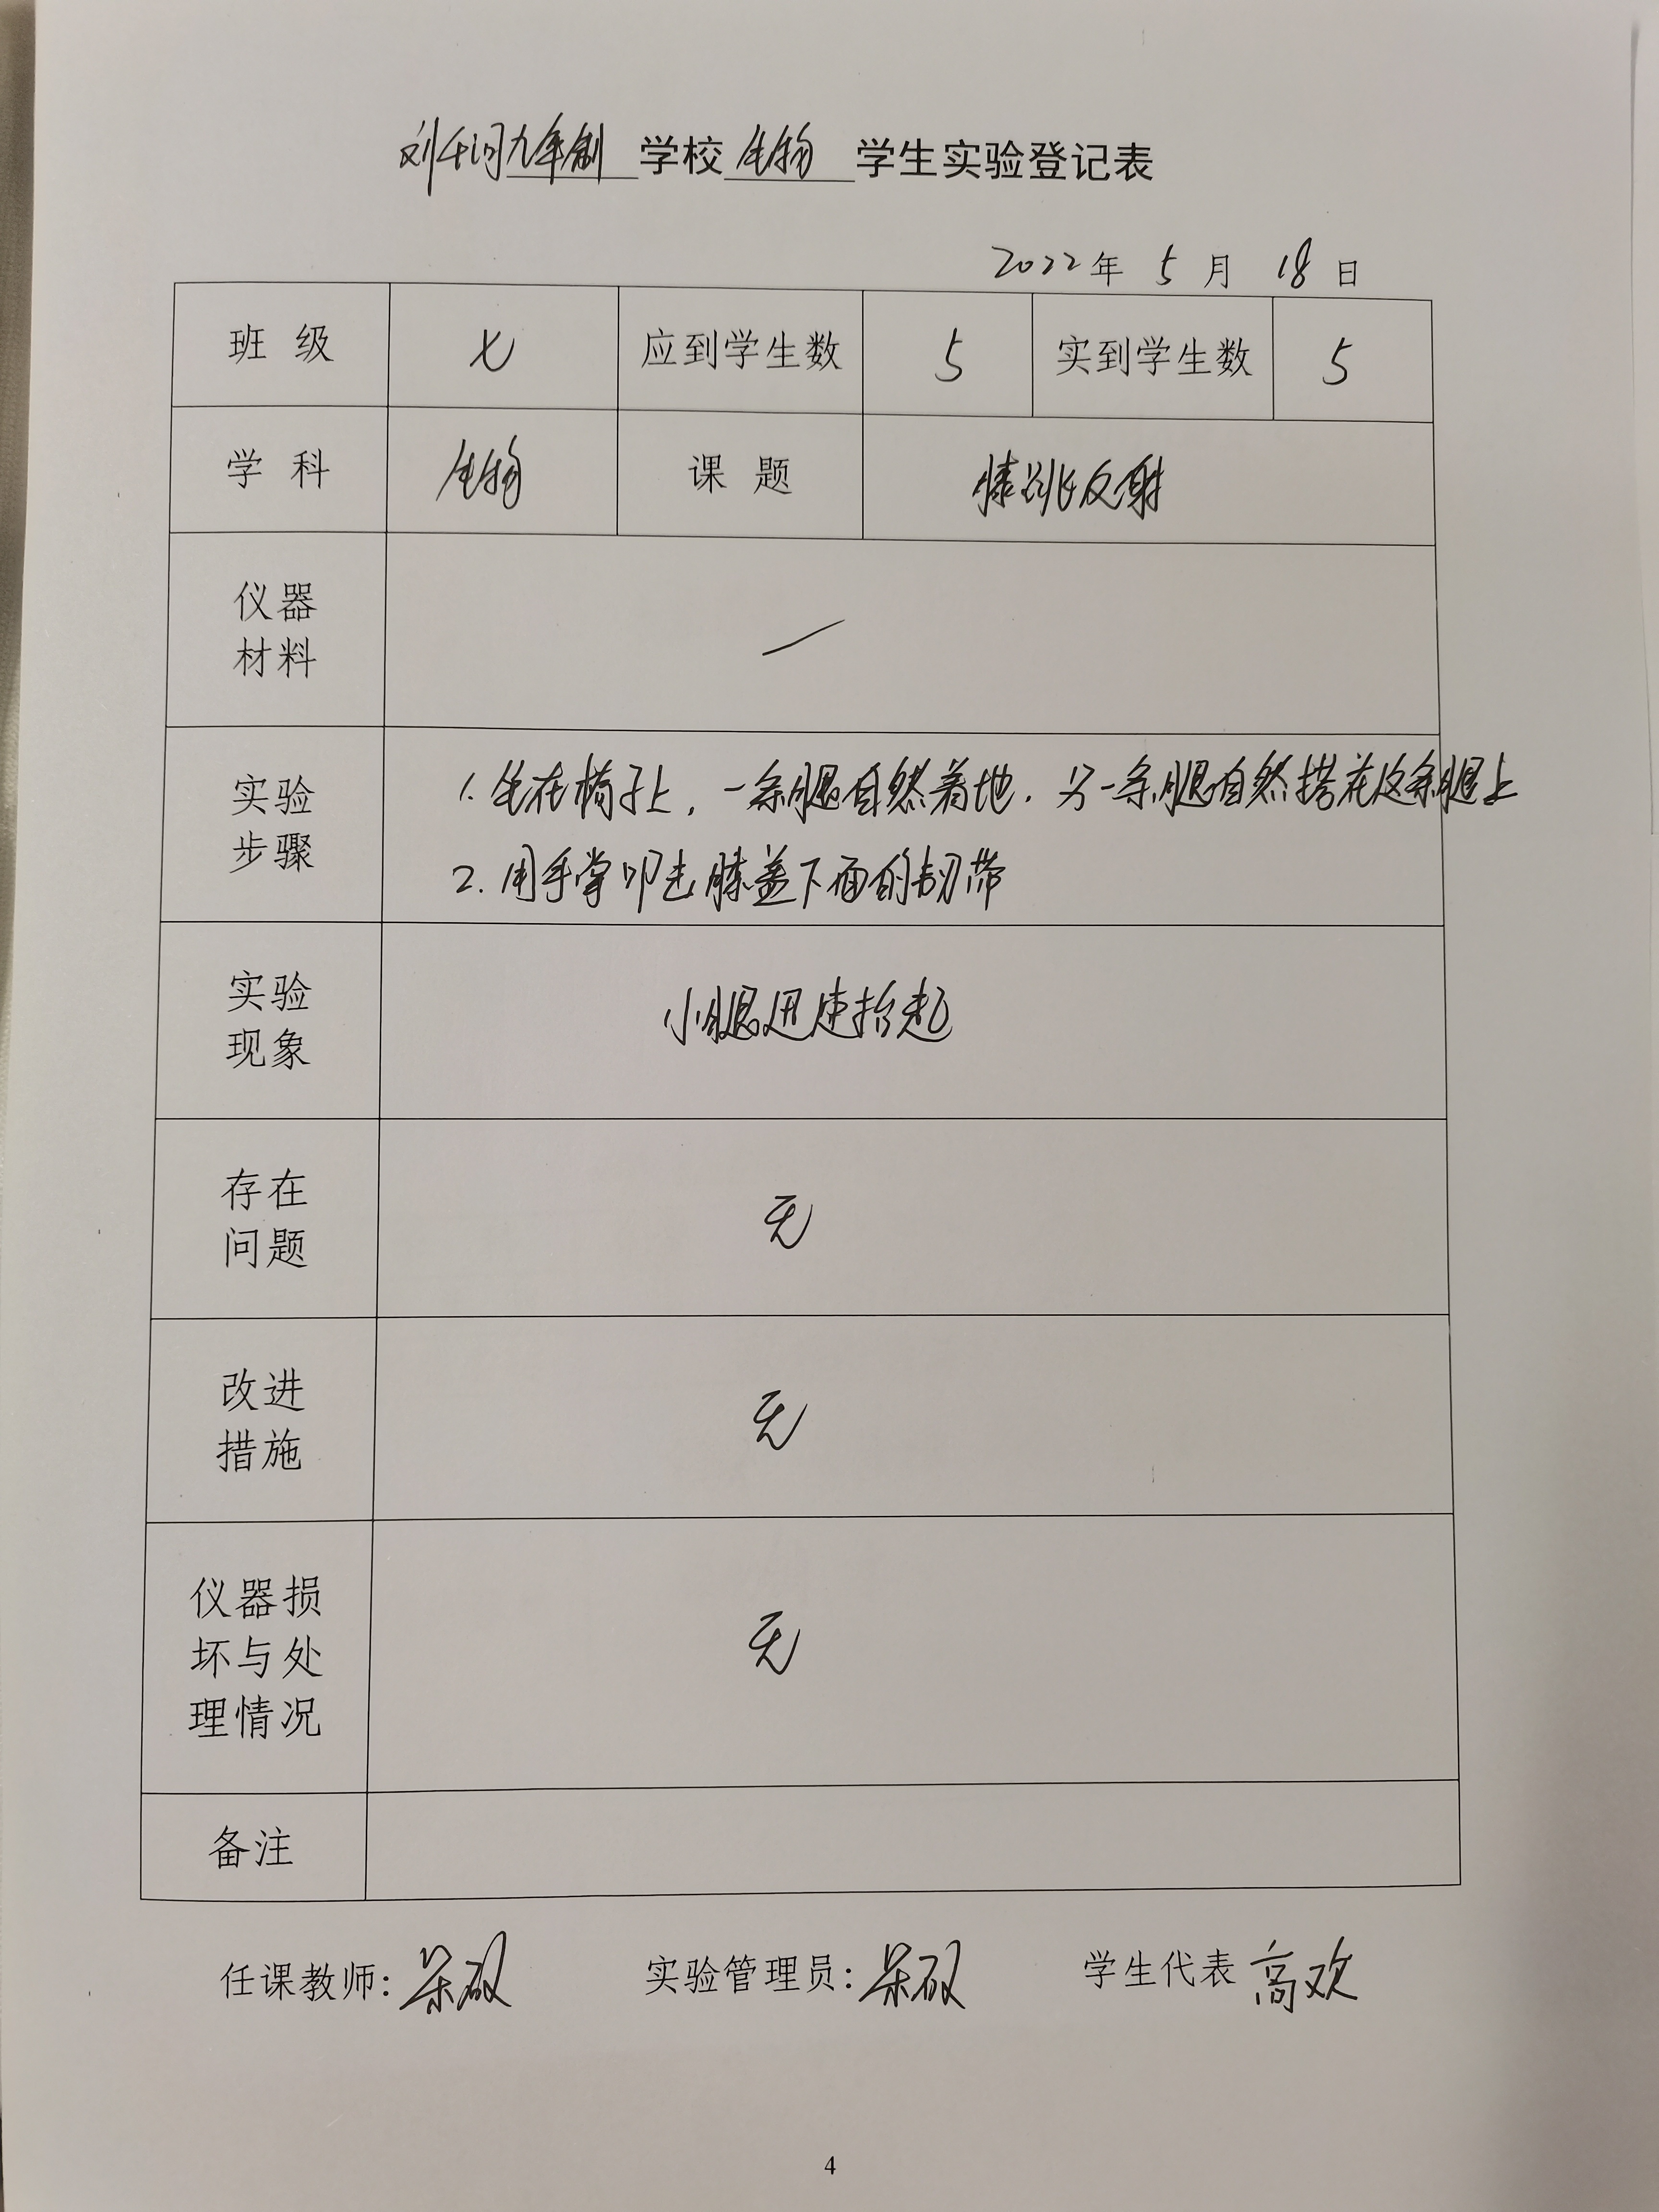 刘千河九年制学校生物学生实验登记表
2022年 5月 18日
班级 七 应到学生数 5 实到学生数 5
学科 生物 课题 膝跳反射
仪器
材料
实验
步骤
1. 坐在椅子上，一条腿自然着地，另一条腿自然搭在这条腿上
2. 用手掌叩击膝盖下面的韧带
实验
现象
小腿迅速抬起
存在
问题
无
改进
措施
无
仪器损
坏与处
理情况
无
备注
任课教师: 实验管理员: 学生代表 高欢
4